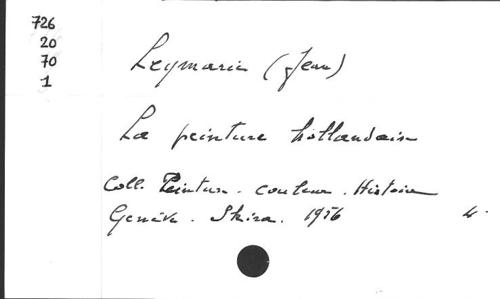 726
20
70
1
Leymarie (Jean)
La peinture hollandaise
Coll. Peinture. couleur. Histoire
Genève. Skira. 1956 4°